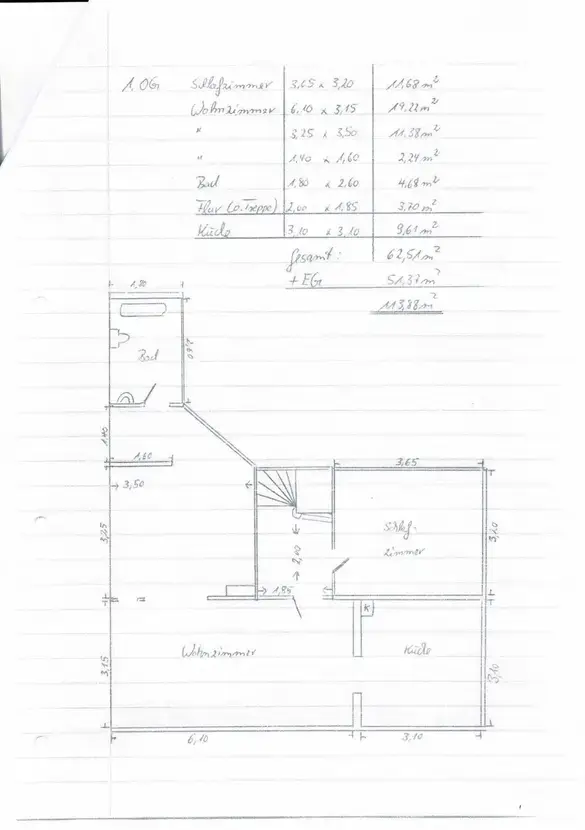 1. OG Schlafzimmer 3,65 x 3,20 11,68 m²
Wohnzimmer 6,10 x 3,15 19,22 m²
" 3,25 x 3,50 11,38 m²
" 1,40 x 1,60 2,24 m²
Bad 1,80 x 2,60 4,68 m²
Flur (o. Treppe) 2,00 x 1,85 3,70 m²
Küche 3,10 x 3,10 9,61 m²
Gesamt: 62,51 m²
+ EG 51,37 m²
113,88 m²
1,80
Bad
2,60
1,40
1,60
3,50
3,65
3,25
2,00
Schlaf-
zimmer
3,20
1,85
K
Wohnzimmer
Küche
3,15
3,10
6,10
3,10